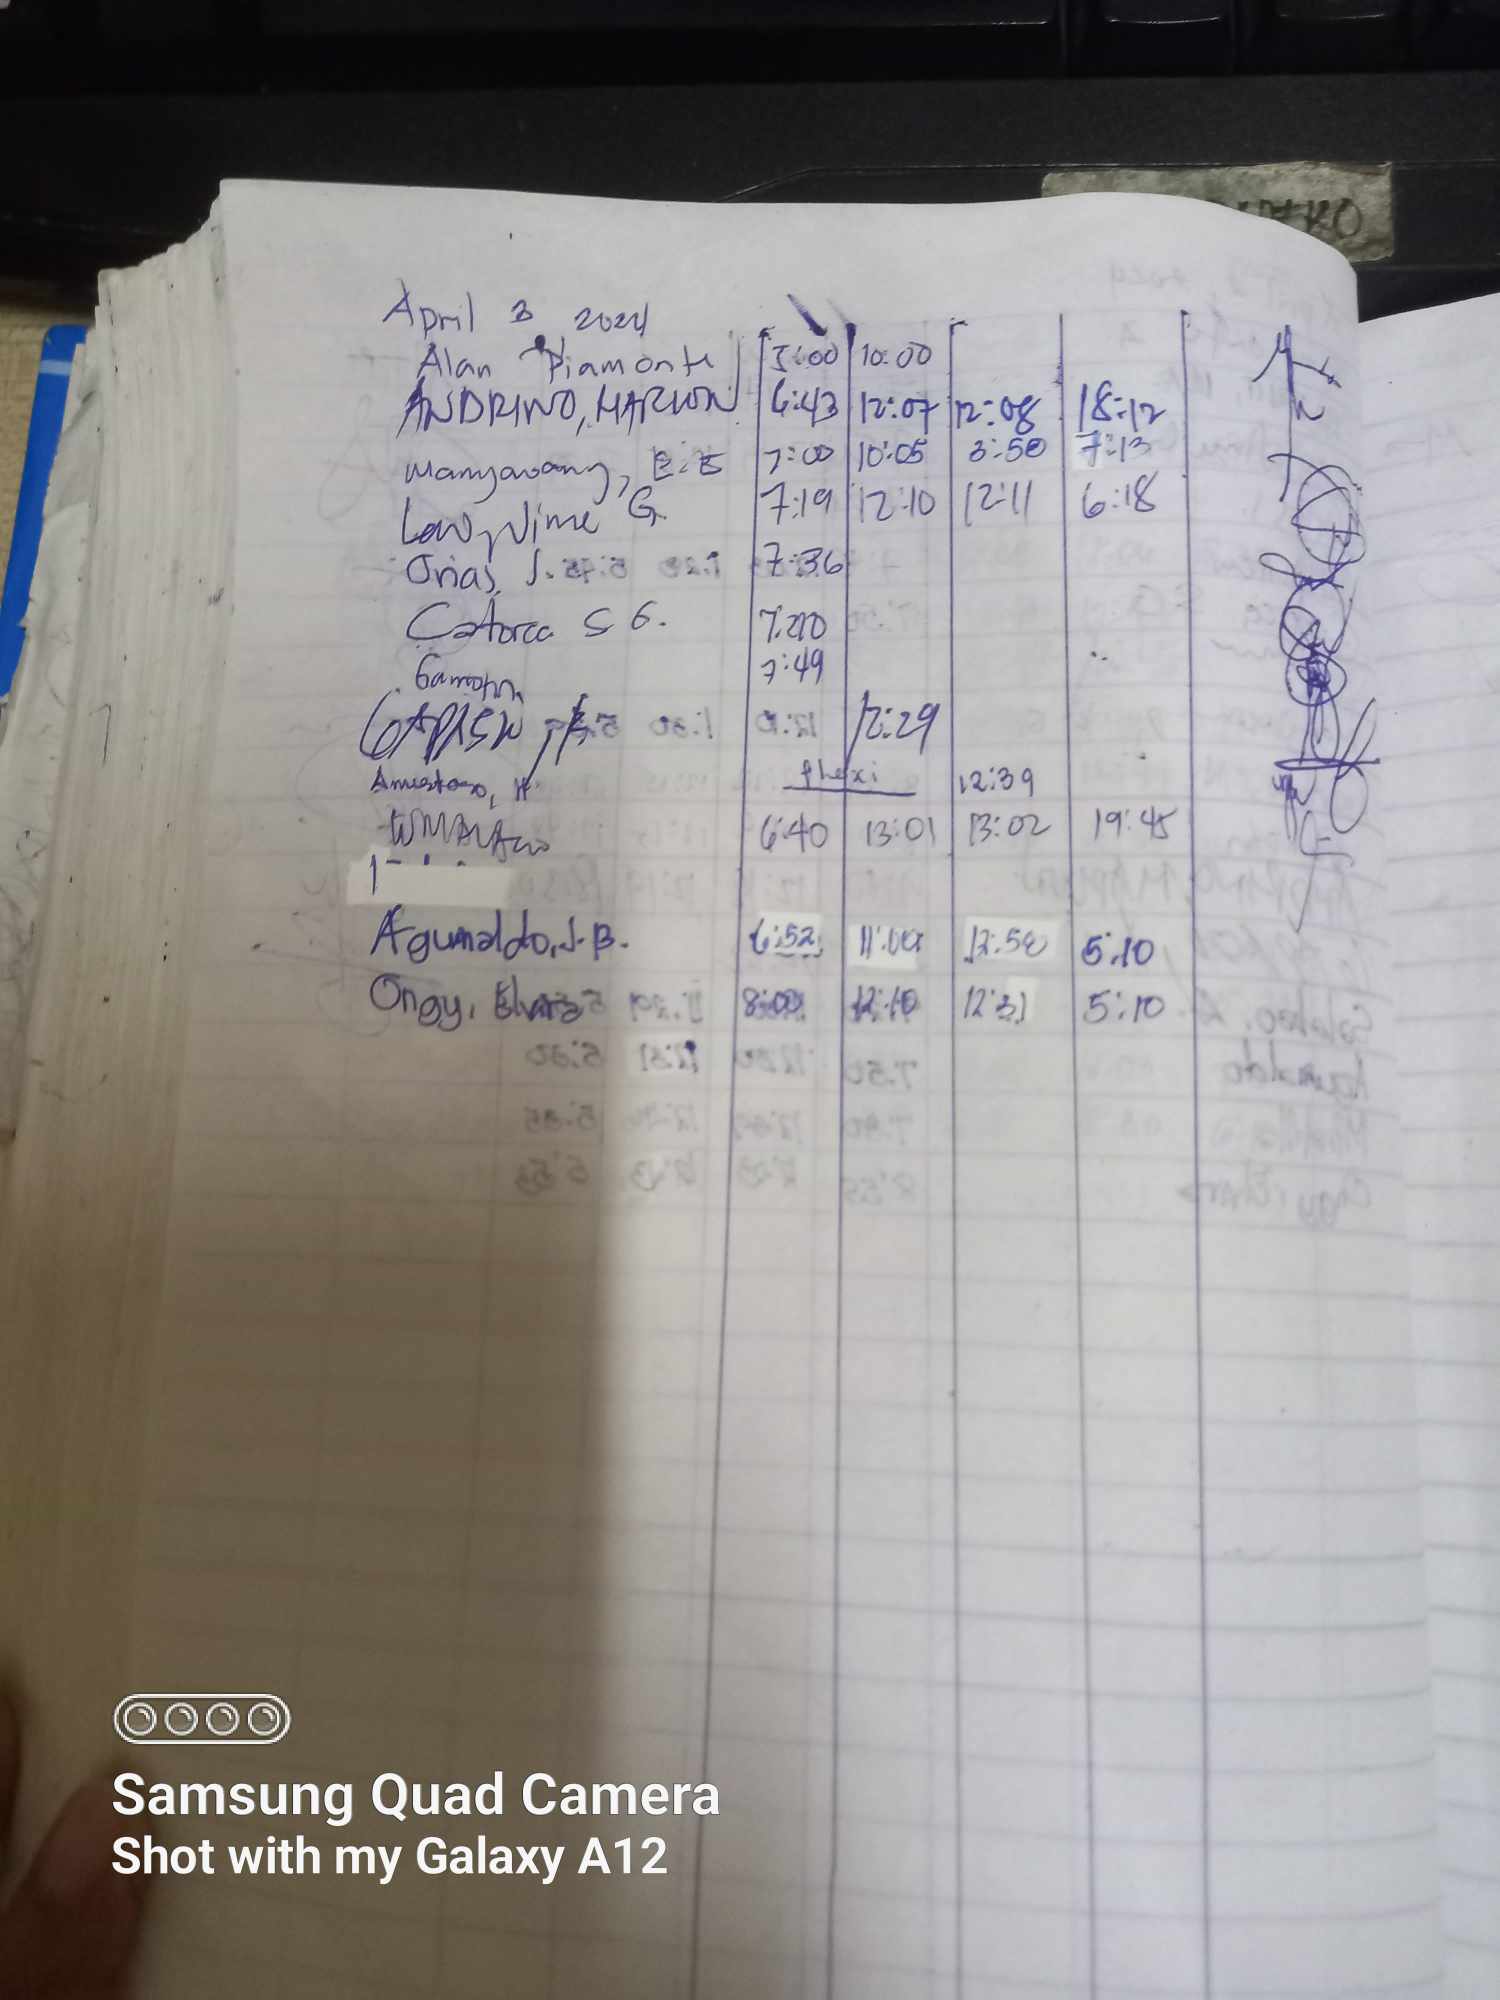 April 3 2024
Alan Piamonte 5:00 10:00
ANDRINO, MARLON 6:43 12:07 12:08 18:12
Manyawang, E. E 7:00 10:05 3:50 7:13
Law, Jime G. 7:19 12:10 12:11 6:18
Orias, J. 7:36
Catorce S G. 7:20
7:49
12:29
H. flexi 12:39
6:40 13:01 13:02 19:45
Agumaldo, J. B. 6:52 11:00 12:50 5:10
Ongy, Elvira 8:00 12:10 12:31 5:10
Samsung Quad Camera
Shot with my Galaxy A12